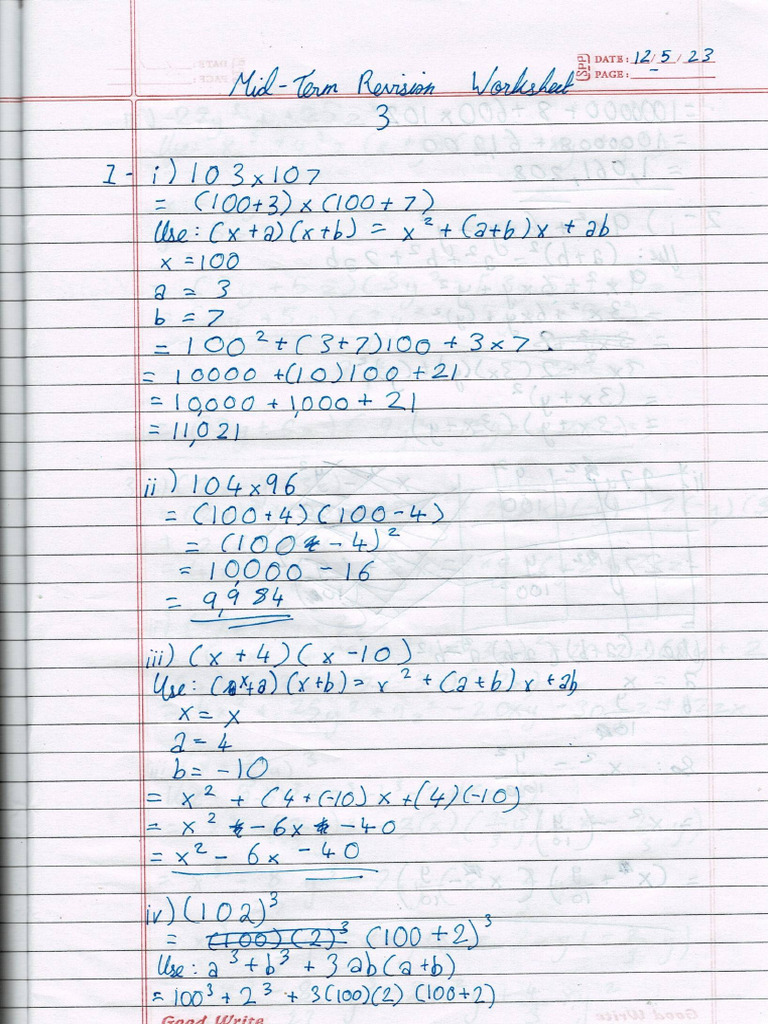 SPP DATE: 12/5/23
PAGE:
Mid-Term Revision Worksheet
3
1- i) 103×107
= (100+3) × (100+7)
Use: (x+a)(x+b) = x² + (a+b)x + ab
x = 100
a = 3
b = 7
= 100² + (3+7)100 + 3×7
= 10000 + (10)100 + 21
= 10,000 + 1,000 + 21
= 11,021
ii) 104×96
= (100+4)(100-4)
= (100 - 4)²
= 10,000 - 16
= 9,984
iii) (x+4)(x-10)
Use: (x+a)(x+b) = x² + (a+b)x + ab
x = x
a = 4
b = -10
= x² + (4+(-10)x + (4)(-10)
= x² - 6x - 40
= x² - 6x - 40
iv) (102)³
= (100)(2)³ (100+2)³
Use: a³ + b³ + 3ab(a+b)
= 100³ + 2³ + 3(100)(2)(100+2)
Good Write